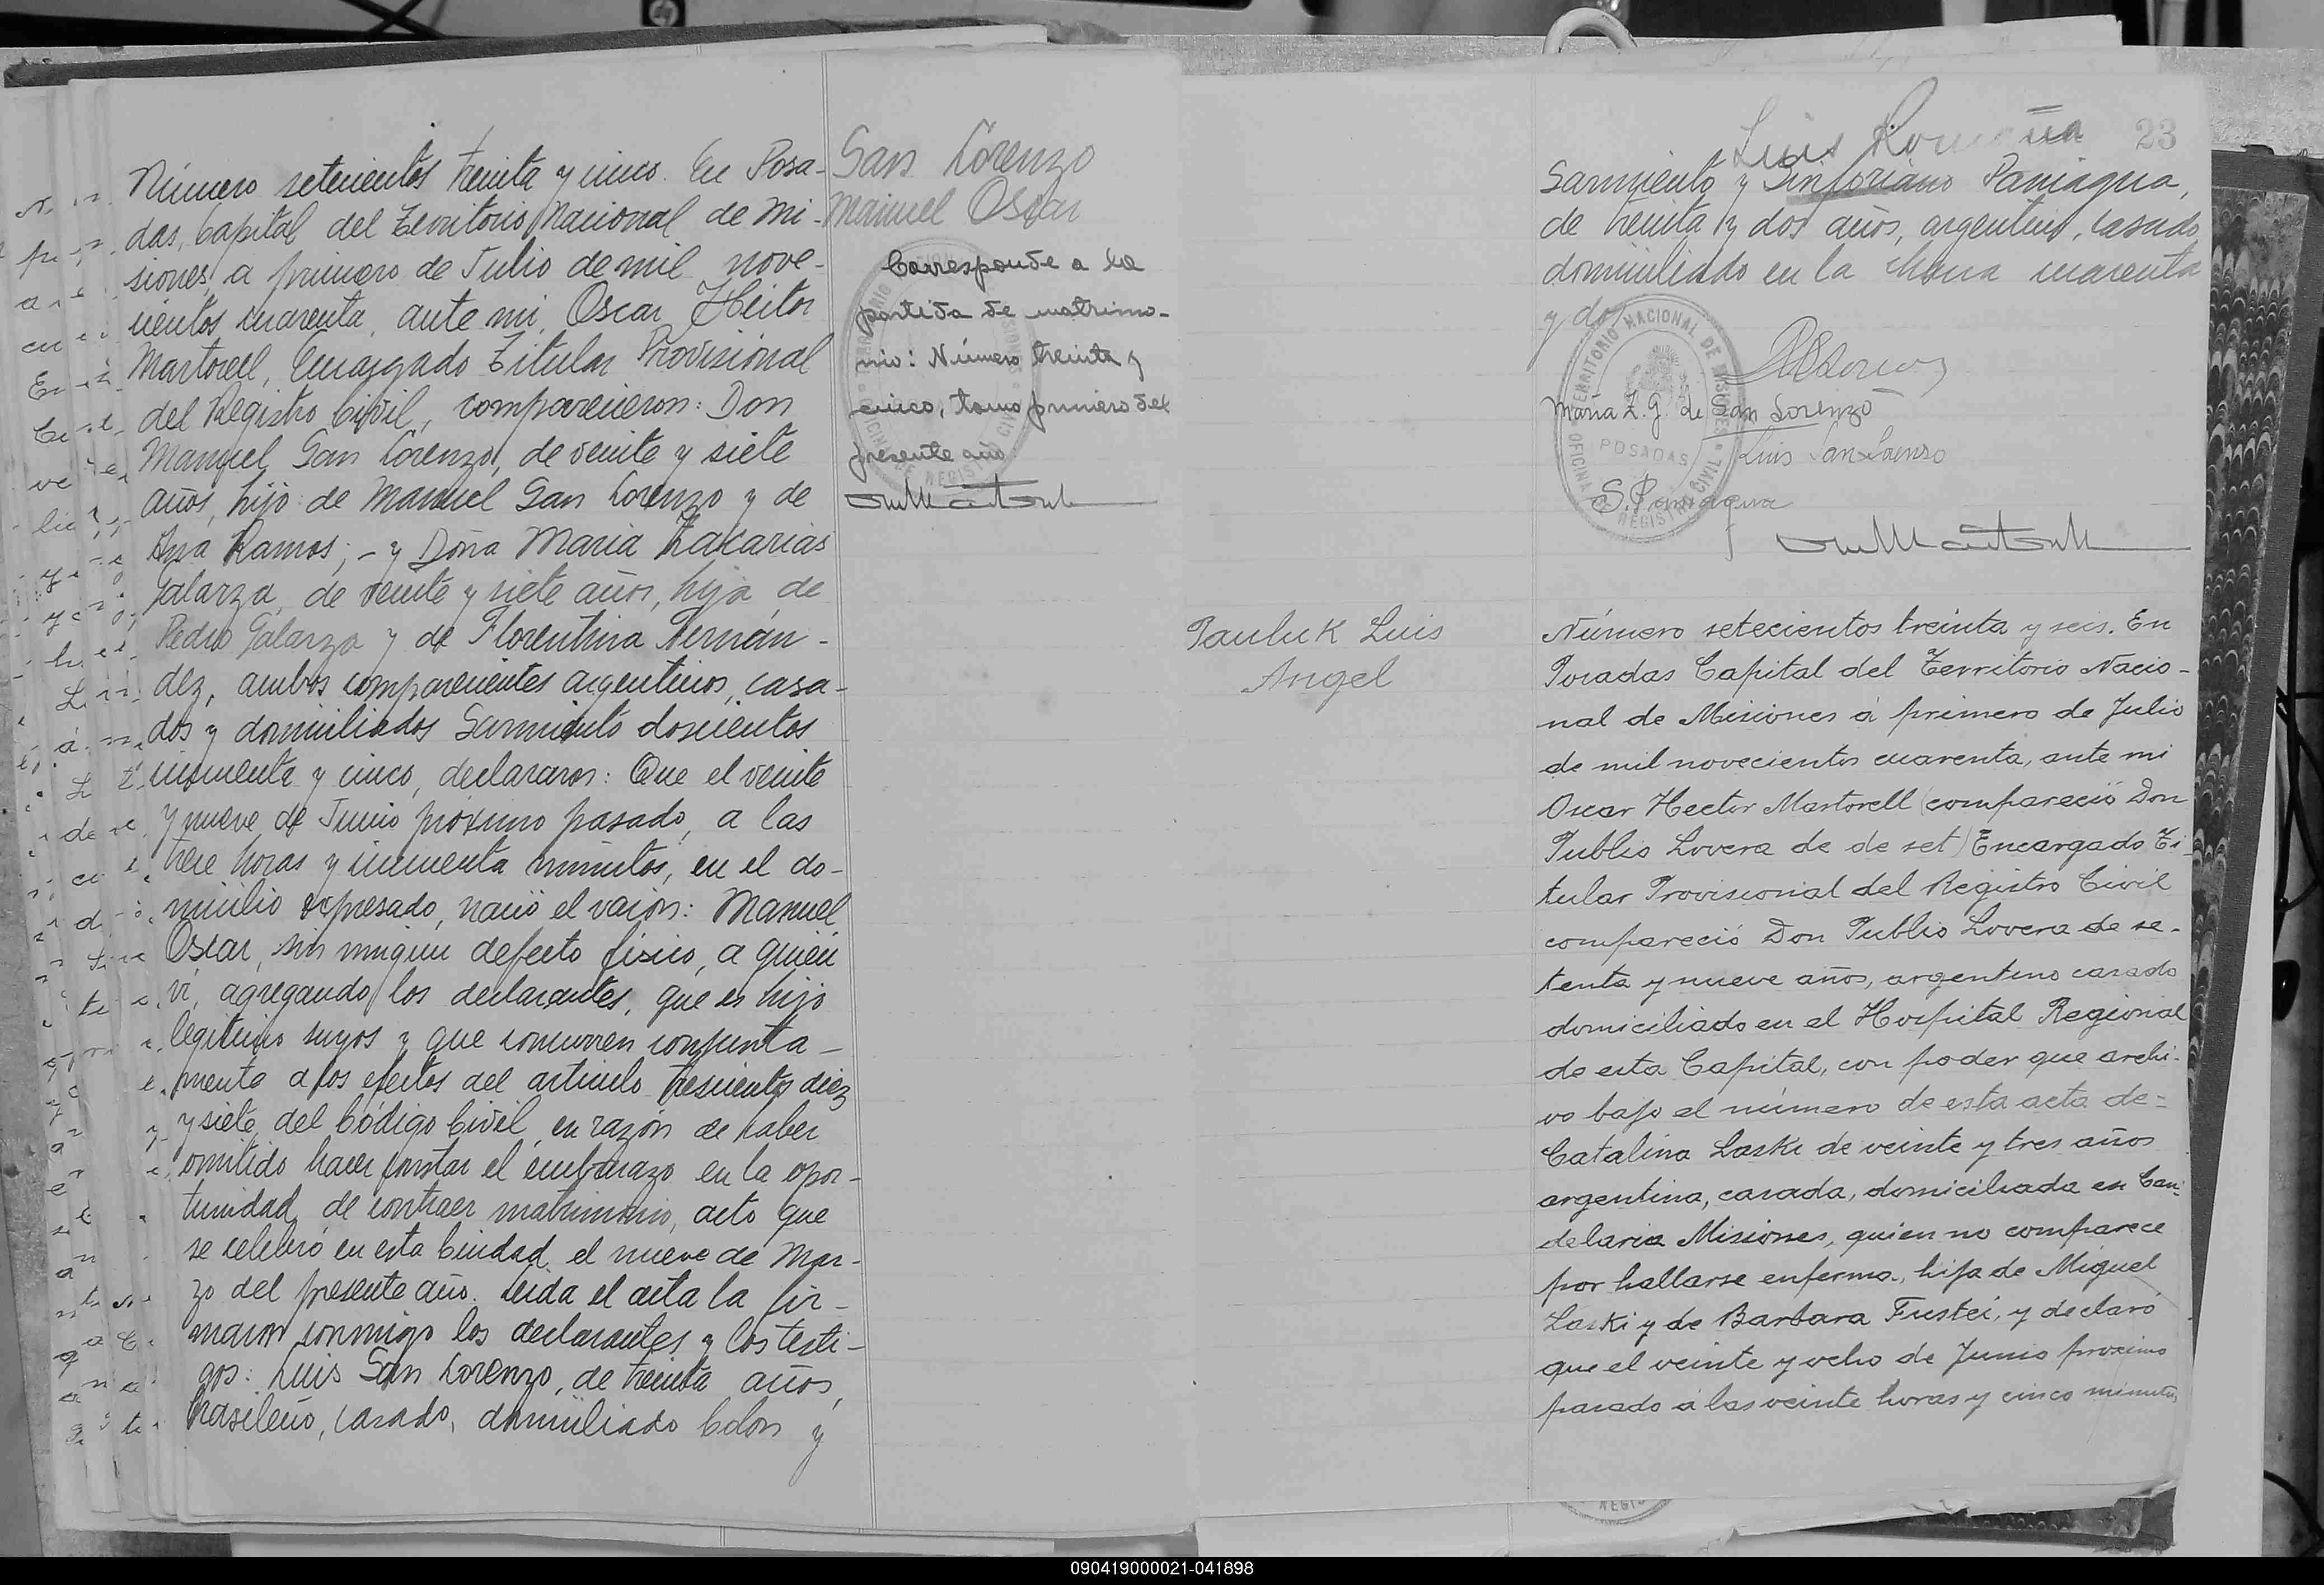 Número setecientos treinta y cinco. En Posa-
das, Capital del Territorio Nacional de Mi-
siones, a primero de Julio de mil nove-
cientos cuarenta, ante mi, Oscar Héctor
Martorell, Encargado Titular Provisional
del Registro Civil, comparecieron: Don
Manuel San Lorenzo, de veinte y siete
años, hijo de Manuel San Lorenzo y de
Ana Ramos; - y Doña Maria Zacarias
Galarza, de veinte y siete años, hija de
Pedro Galarza y de Florentina Fernán-
dez, ambos comparecientes argentinos, casa-
dos y domiciliados Sarmiento doscientos
cincuenta y cinco, declararon: Que el veinte
y nueve de Junio próximo pasado, a las
trece horas y cincuenta minutos, en el do-
micilio expresado, nació el varón: Manuel
Oscar, sin ningun defecto fisico, a quién
ví, agregando los declarantes, que es hijo
legitimo suyos y que concurren conjunta-
mente a los efectos del articulo trescientos diez
y siete del Código Civil, en razón de haber
omitido hacer constar el embarazo en la opor-
tunidad de contraer matrimonio, acto que
se celebró en esta Ciudad el nueve de Mar-
zo del presente año. Leida el acta la fir-
maron conmigo los declarantes y los testi-
gos: Luis San Lorenzo, de treinta años,
brasileño, casado, domiciliado Colon y
San Lorenzo
Manuel Oscar
Corresponde a la
partida de matrimo-
nio: Número treinta y
cinco, tomo primero del
presente año
23
Luis
Sarmiento y Sinforiano Paniagua,
de treinta y dos años, argentino, casado
domiciliado en la chacra cuarenta
y dos
TERRITORIO NACIONAL DE MISIONES
POSADAS
OFICINA DE REGISTRO CIVIL
Maria Z. G. de San Lorenzo
Luis San Lorenzo
S. Paniagua
Pauluk Luis
Angel
Número setecientos treinta y seis. En
Posadas Capital del Territorio Nacio-
nal de Misiones á primero de Julio
de mil novecientos cuarenta, ante mi
Oscar Hector Martorell (compareció Don
Publio Lovera de de set) Encargado Ti-
tular Provisional del Registro Civil
compareció Don Publio Lovera de se-
tenta y nueve años, argentino casado
domiciliado en el Hospital Regional
de esta Capital, con poder que archi-
vo bajo el número de esta acta de=
Catalina Laski de veinte y tres años
argentina, casada, domiciliada en Can-
delaria Misiones, quien no comparece
por hallarse enferma, hija de Miguel
Laski y de Barbara Fustei, y declaró
que el veinte y ocho de Junio proximo
pasado á las veinte horas y cinco minutos,
090419000021-041898